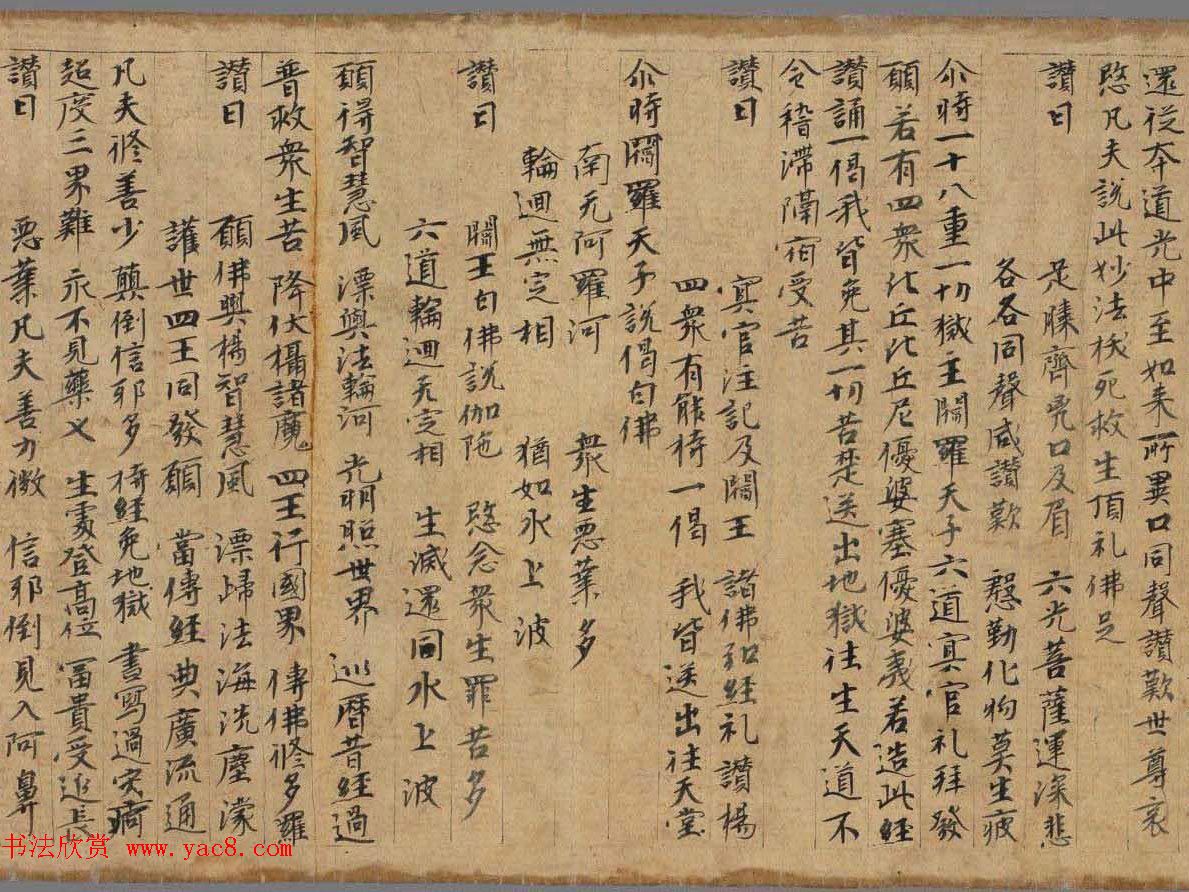 還從本道光中至如來所異口同聲讚歎世尊哀
愍凡夫說此妙法拔死救生頂礼佛足
讚曰
足膝齊兇口及眉 六光菩薩運深悲
各各同聲咸讚歎 慇勤化物莫生疲
尒時一十八重一切獄主閻羅天子六道冥官礼拜發
願若有四衆比丘比丘尼優婆塞優婆夷若造此經
讚誦一偈我皆免其一切苦楚送出地獄往生天道不
令稽滯隔宿受苦
讚曰
冥官注記及閻王 諸佛弘經礼讚揚
四衆有能持一偈 我皆送出往天堂
尒時閻羅天子說偈白佛
南无阿羅河 衆生惡業多
輪迴無定相 猶如水上波
讚曰
閻王白佛說伽陁 愍念衆生罪苦多
六道輪迴无定相 生滅還同水上波
願得智慧風 漂與法輪河 光明照世界 巡曆昔經過
普救衆生苦 降伏攝諸魔 四王行國界 傳佛修多羅
讚曰
願佛興揚智慧風 漂歸法海洗塵濛
護世四王同發願 當傳經典廣流通
凡夫修善少 顛倒信耶多 持經免地獄 書寫過灾痾
超度三界難 永不見藥叉 生處登高位 冨貴受延長
讚曰
惡業凡夫善力微 信耶倒見入阿鼻
书法欣赏 www.yac8.com